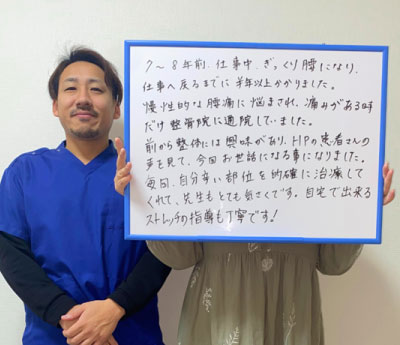 7〜8年前、仕事中、ぎっくり腰になり、
仕事へ戻るまでに半年以上かかりました。
慢性的な腰痛に悩まされ、痛みがある時
だけ整骨院に通院していました。
前から整体には興味があり、HPの患者さんの
声を見て、今回お世話になる事になりました。
毎回、自分辛い部位を的確に治療して
くれて、先生もとても気さくです。自宅で出来る
ストレッチの指導も丁寧です!